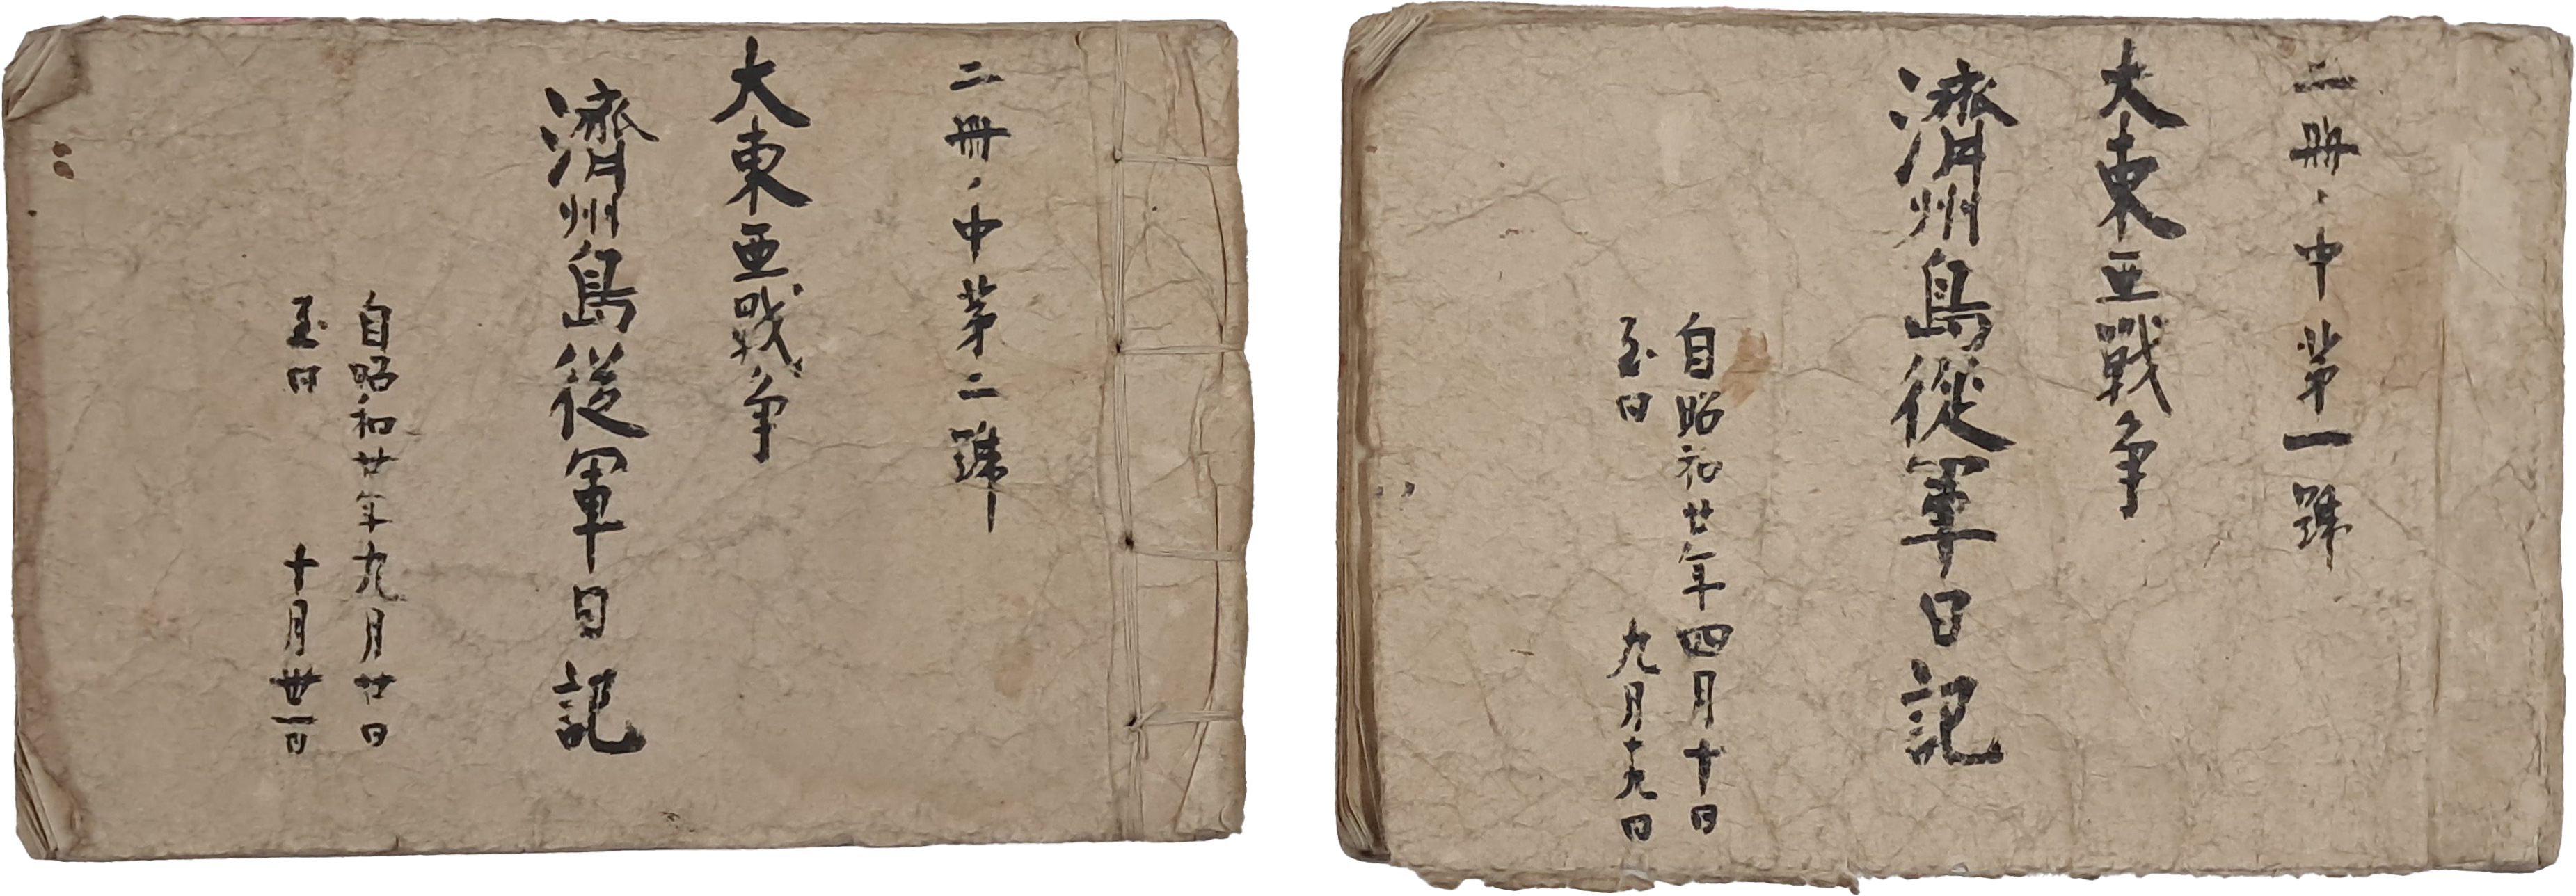 二冊ノ中第一號
大東亜戰争
濟州島從軍日記
自昭和廿年四月十日
至同　九月十九日
二冊ノ中第二號
大東亜戰争
濟州島從軍日記
自昭和廿年九月廿日
至同　十月丗一日